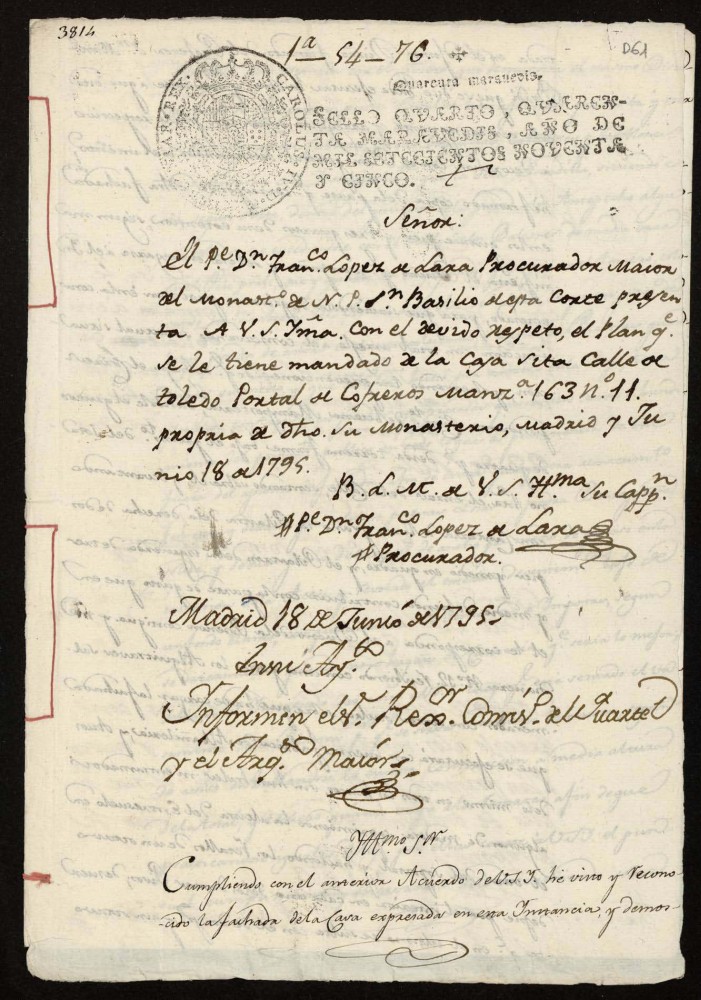 3814
1ª - 54 - 76.
D61
Quarenta maravedis.
CAROLUS IV D. G.
REX
SELLO QVARTO, QVAREN-
TA MARAVEDIS, AÑO DE
MIL SETECIENTOS NOVENTA
Y CINCO.
Señor:
El P.e D.n Fran.co Lopez de Lara Procurador Maior
del Monast.o de N. P. S.n Basilio de esta Corte presen
ta A V. S. Yma. con el devido respeto, el Plan q.e
se le tiene mandado de la Casa Sita Calle de
toledo Portal de Cofreros Manz.a 163 N.o 11.
propria de dho. su Monasterio, Madrid y Ju
nio 18 de 1795.
B. L. M. de V. S. Y.ma su Capp.n
P.e D.n Fran.co Lopez de Lara
Procurador.
Madrid 18 de Junio de 1795
En su Ay.to
Informen el S. Rexor. Comis. del Quartel
y el Arq.to Maior
Yll.mo S.or
Cumpliendo con el anterior Acuerdo de V.S.Y. he visto y recono-
cido la fachada de la Casa expresada en esta Instancia, y demos-